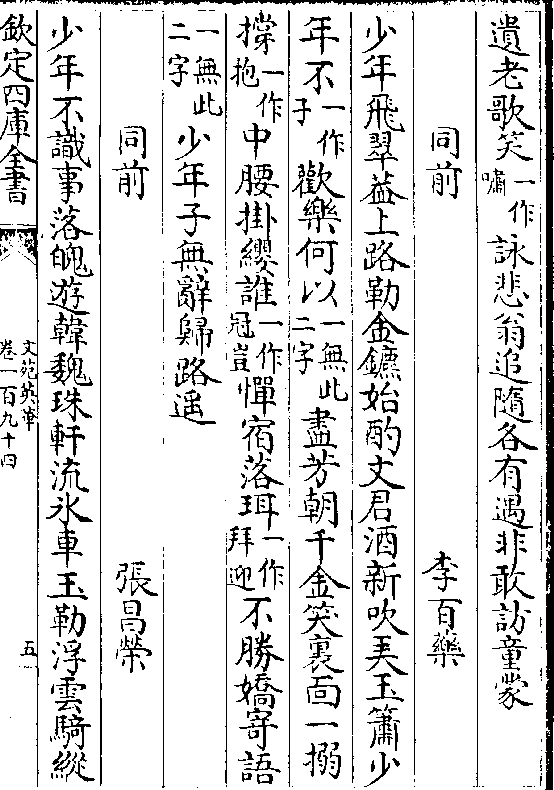 遺老歌笑一作嘯詠悲翁追隨各有遇非敢訪童蒙
同前 李百藥
少年飛翠葢上路勒金鑣始酌文君酒新吹弄玉簫少
年不一作子歡樂何以一無此二字盡芳朝千金笑裏面一搦
掌一作抱中腰掛纓誰一作冠豈憚宿落珥一作拜迎不勝嬌寄語
一無此二字少年子無辭歸路遥
同前 張昌榮
少年不識事落魄遊韓魏珠軒流水車玉勒浮雲騎縱
欽定四庫全書
文苑英華
卷一百九十四
五